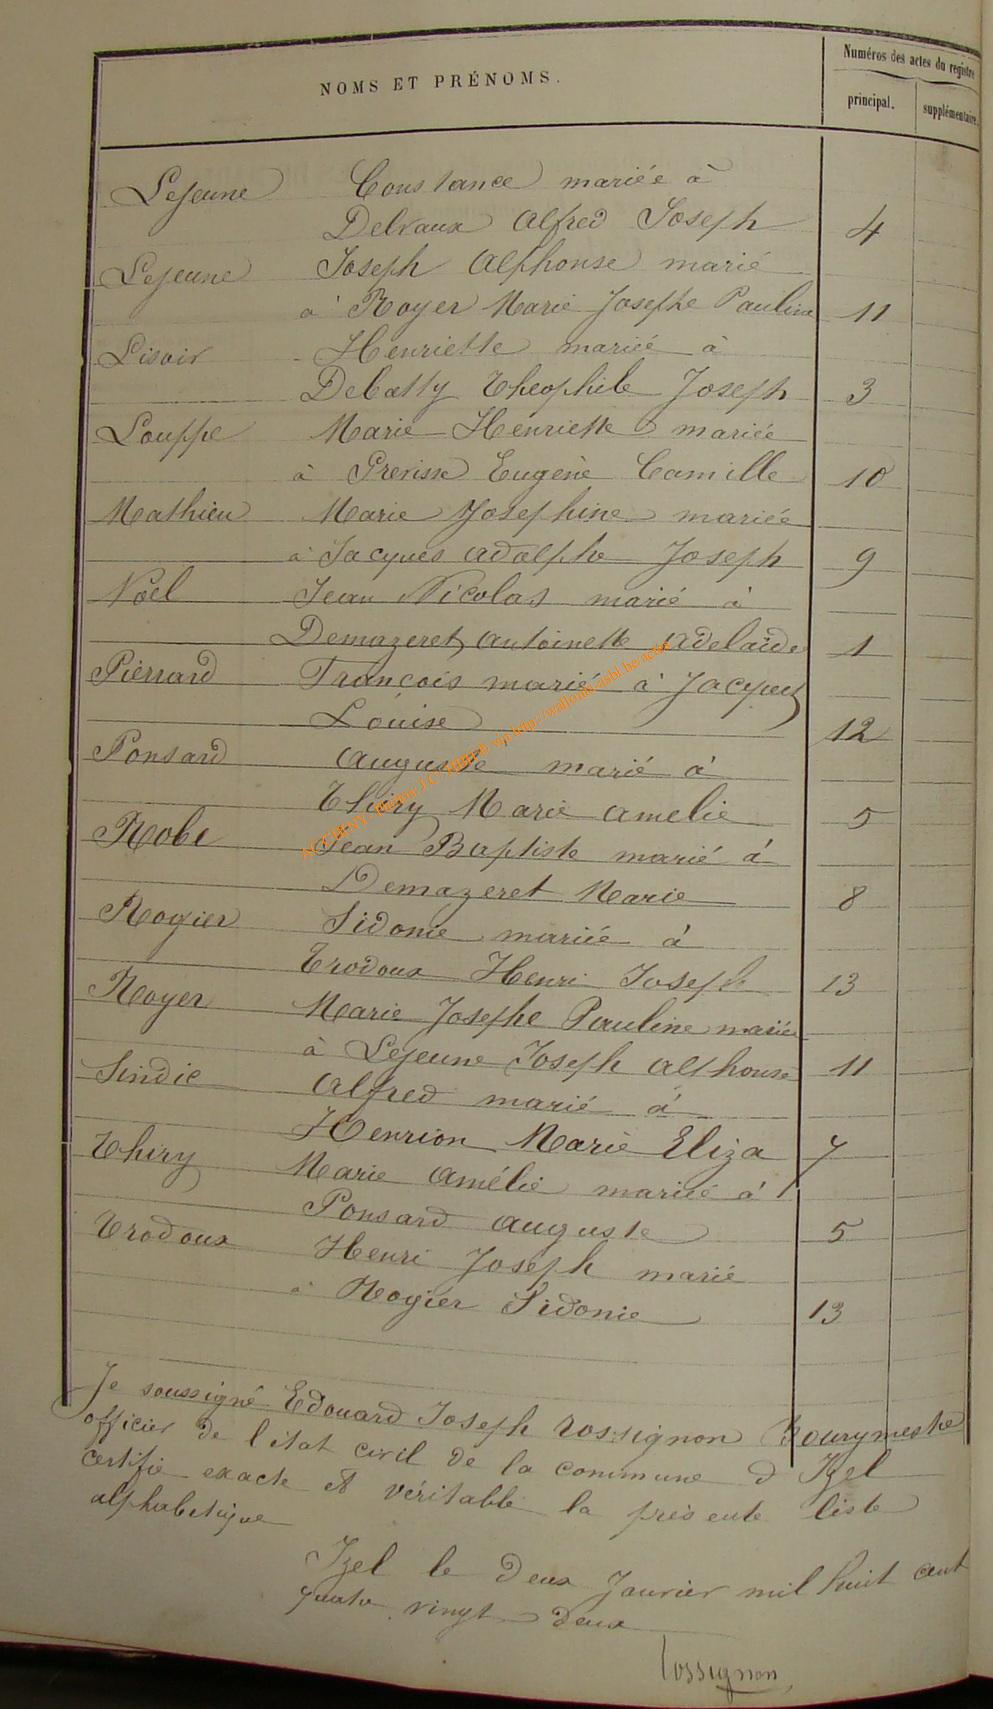 NOMS ET PRÉNOMS.
Numéros des actes du registre
principal. supplémentaire.
Lejeune Constance mariée à
Delvaux Alfred Joseph 4
Lejeune Joseph Alphonse marié
à Royer Marie Josephe Pauline 11
Lisoir Henriette mariée à
Debatty Théophile Joseph 3
Louppe Marie Henriette mariée
à Prévisse Eugène Camille 10
Mathieu Marie Joséphine mariée
à Jacques Adolphe Joseph 9
Noël Jean Nicolas marié à
Demazeret Antoinette Adelaïde 1
Pierrard François marié à Jacques
Louise 12
Ponsard Auguste marié à
Thiry Marie Amelie 5
Robe Jean Baptiste marié à
Demazeret Marie 8
Rogier Sidonie mariée à
Trodoux Henri Joseph 13
Royer Marie Josephe Pauline mariée
à Lejeune Joseph Alphonse 11
Sindic Alfred marié à
Henrion Marie Eliza 7
Thiry Marie Amélie mariée à
Ponsard Auguste 5
Trodoux Henri Joseph marié
à Rogier Sidonie 13
Je soussigné Edouard Joseph Rossignon Bourgmestre
officier de l'état civil de la commune d Izel
certifie exacte et véritable la présente liste
alphabétique
Izel le deux Janvier mil huit cent
quatre vingt deux
Rossignon